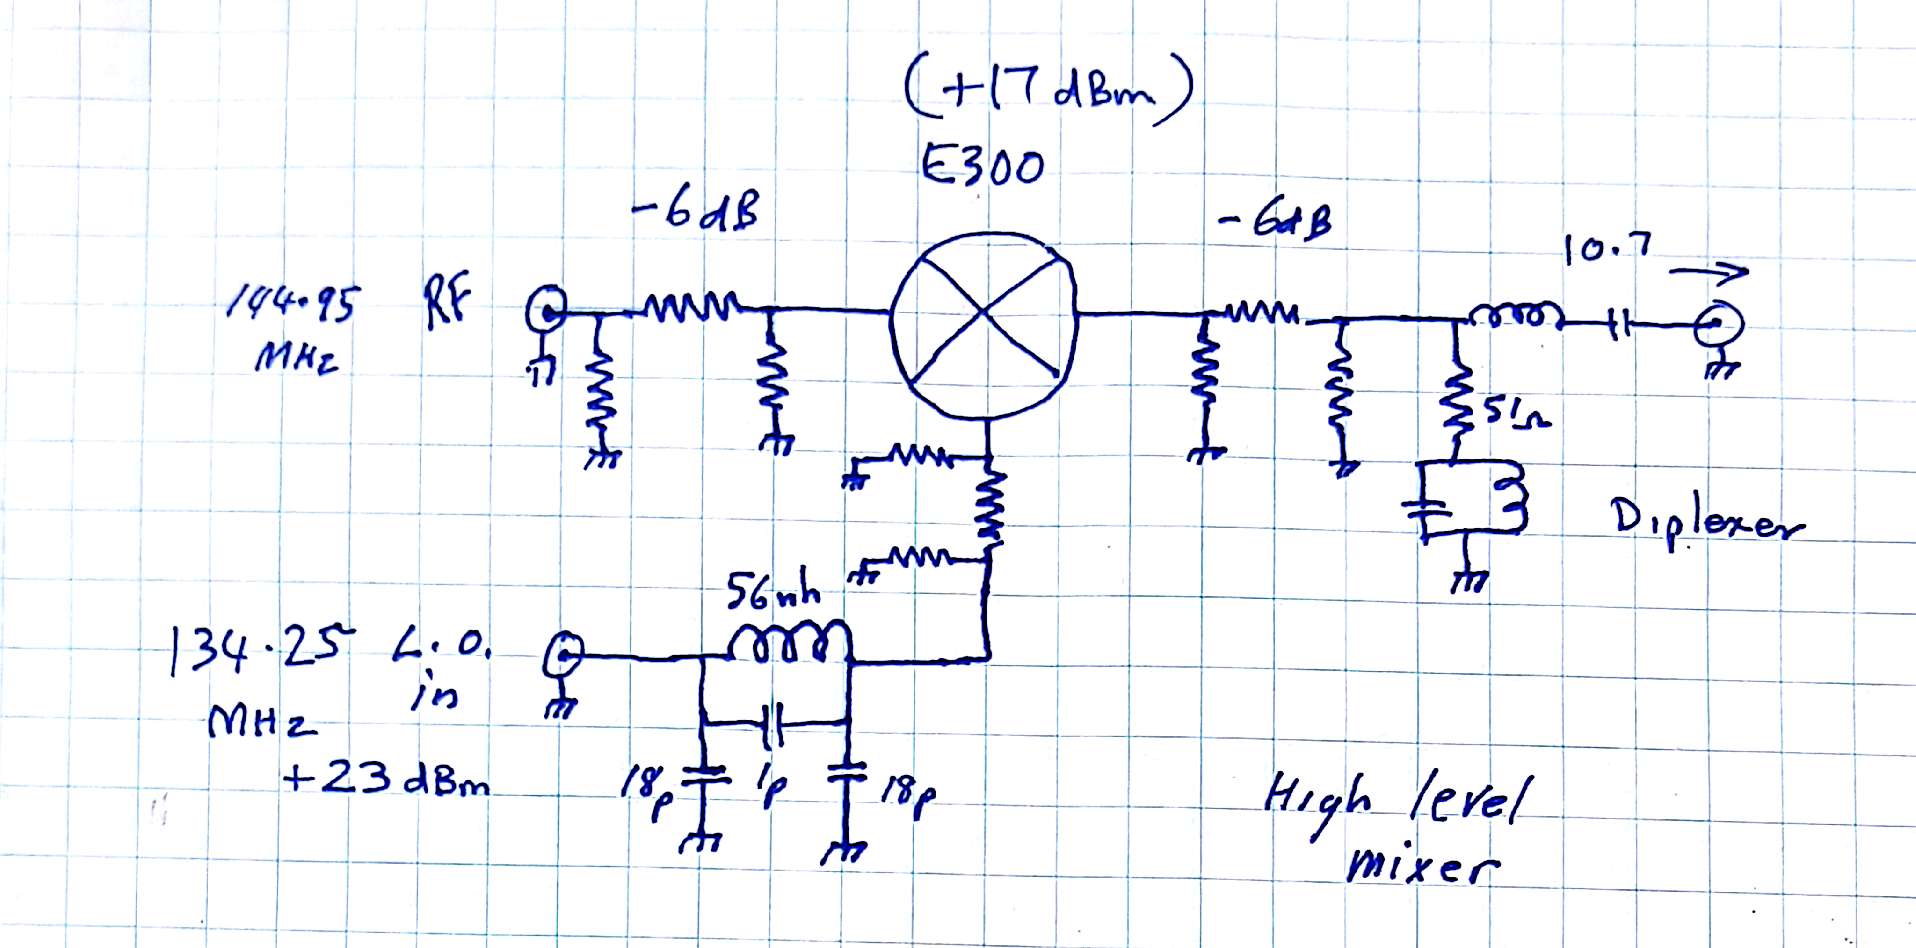 (+17 dBm)
E300
-6dB
-6dB
10.7
144.95 RF
MHz
51Ω
Diplexer
56nh
134.25 L.O.
in
MHz
+23 dBm
18p
1p
18p
High level
mixer